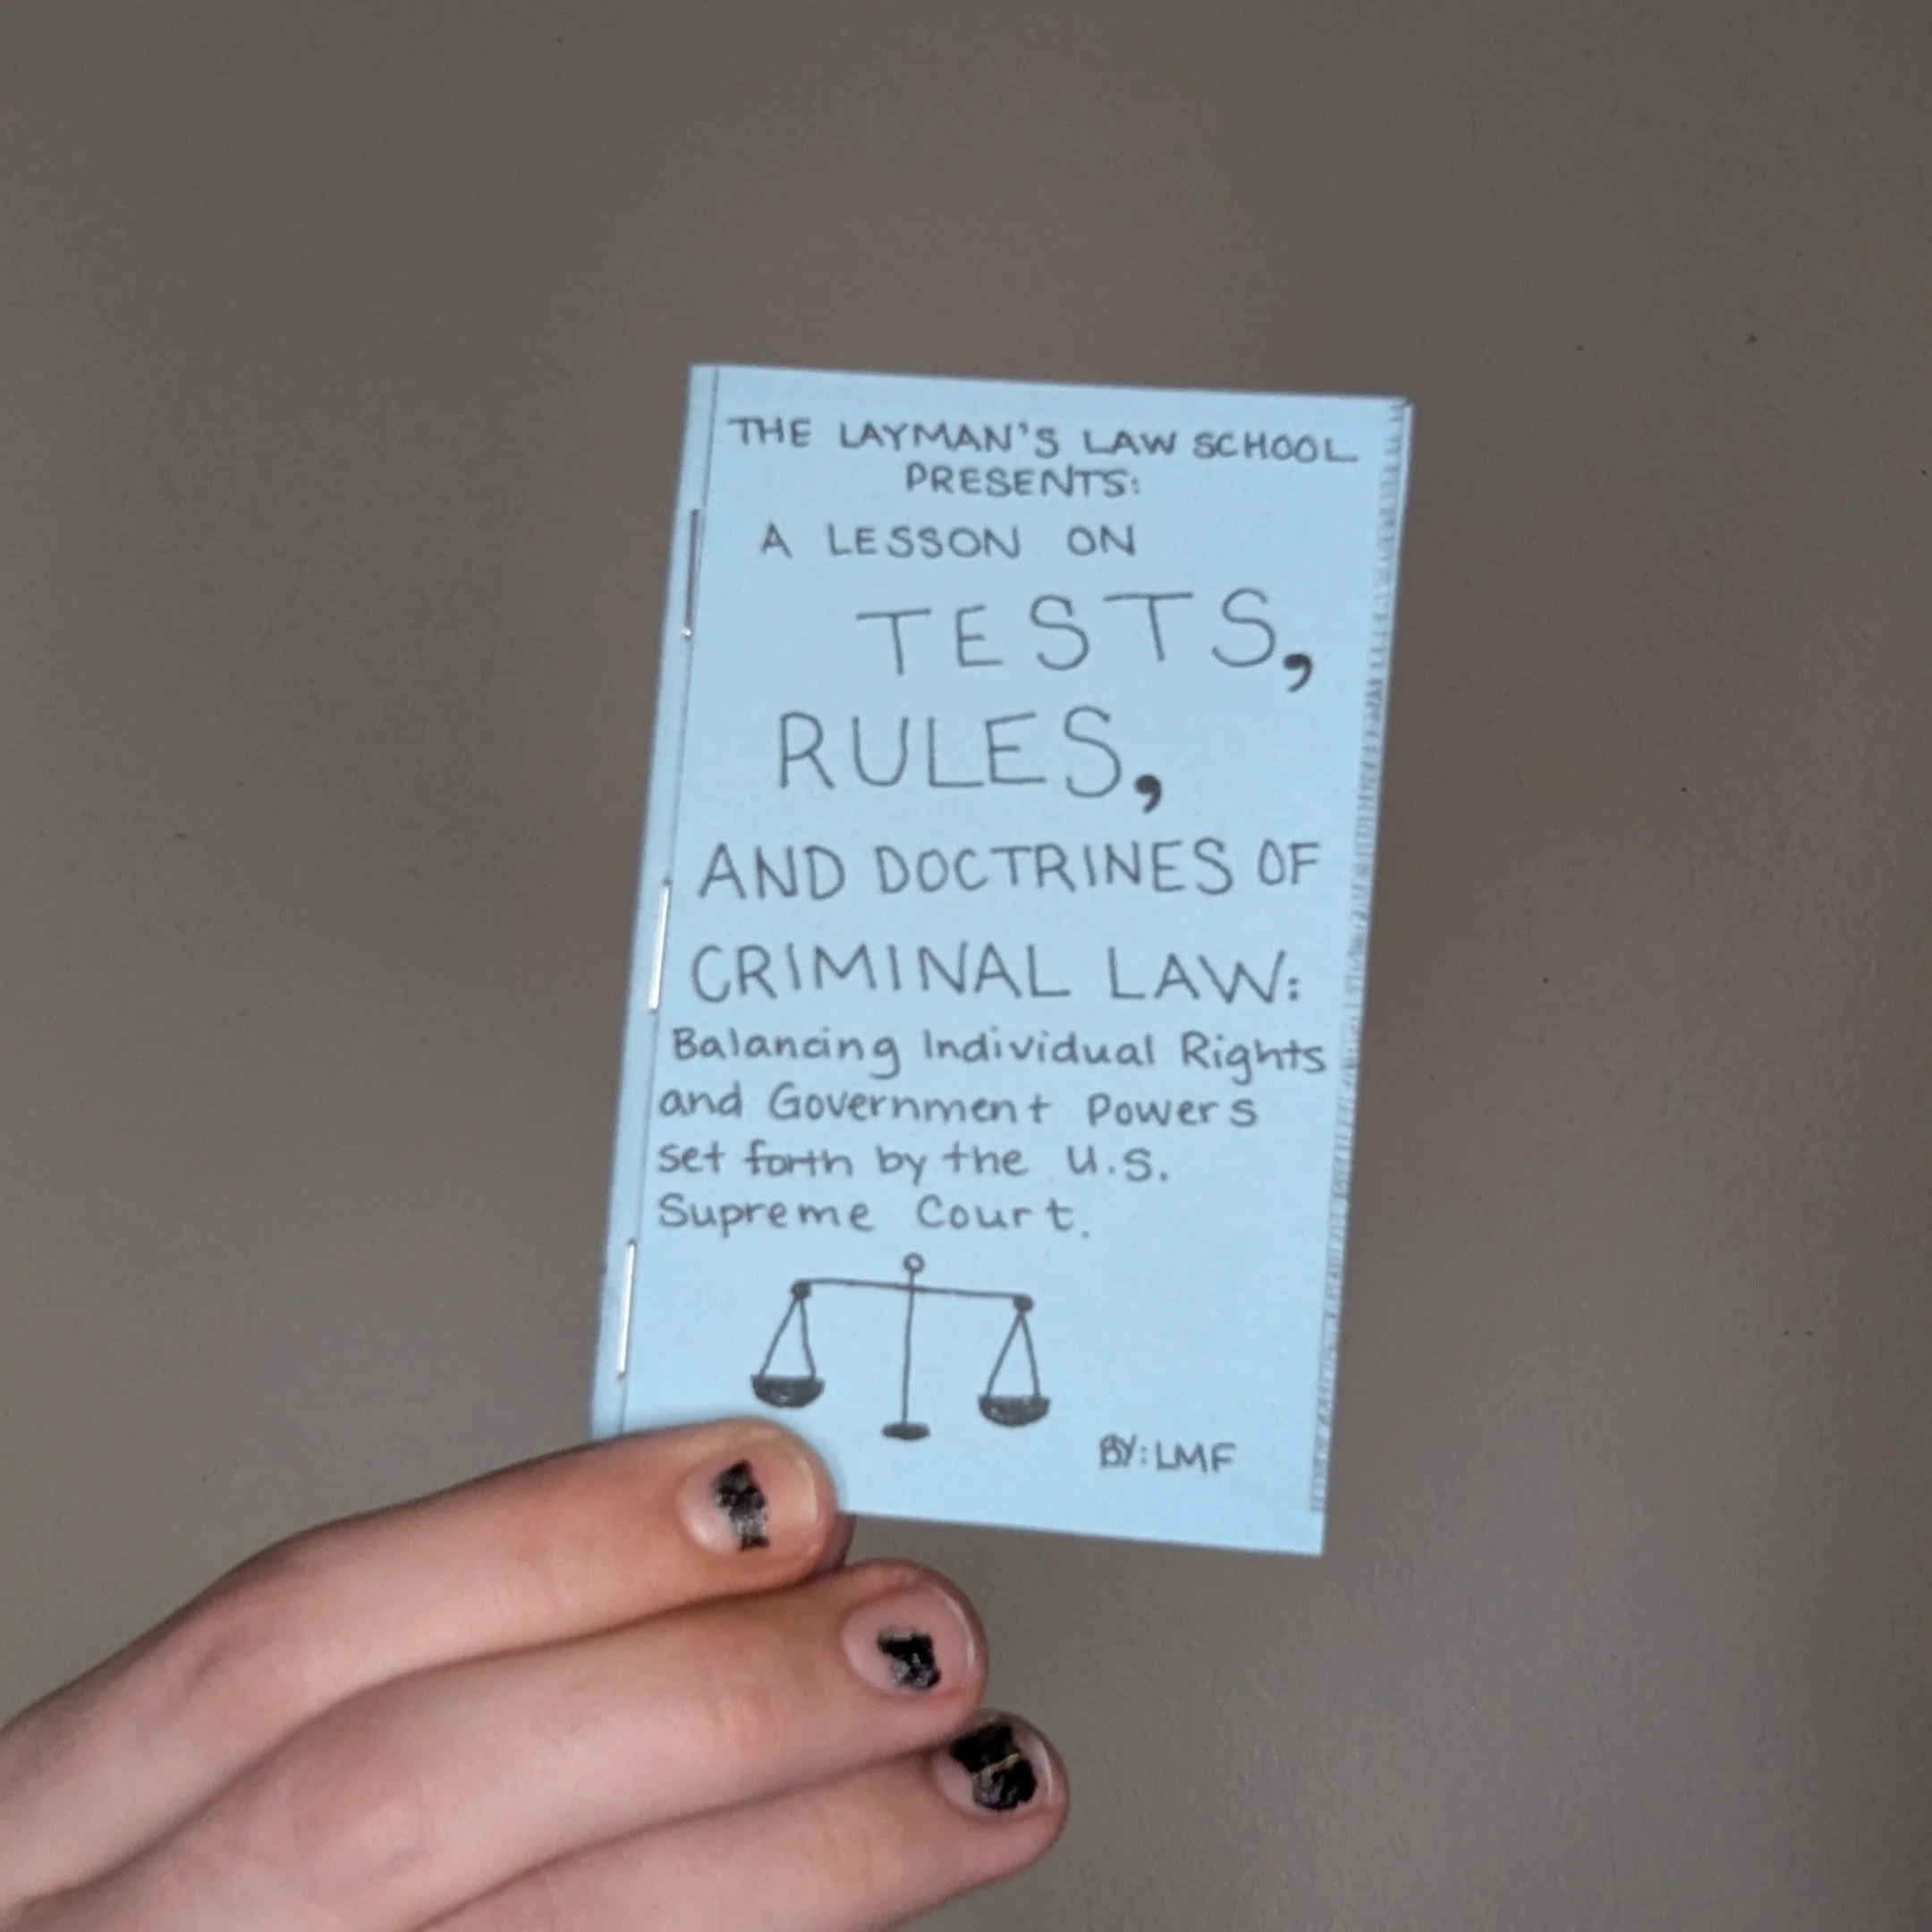 THE LAYMAN'S LAW SCHOOL
PRESENTS:
A LESSON ON
TESTS,
RULES,
AND DOCTRINES OF
CRIMINAL LAW:
Balancing Individual Rights
and Government Powers
set forth by the U.S.
Supreme Court.
BY: LMF